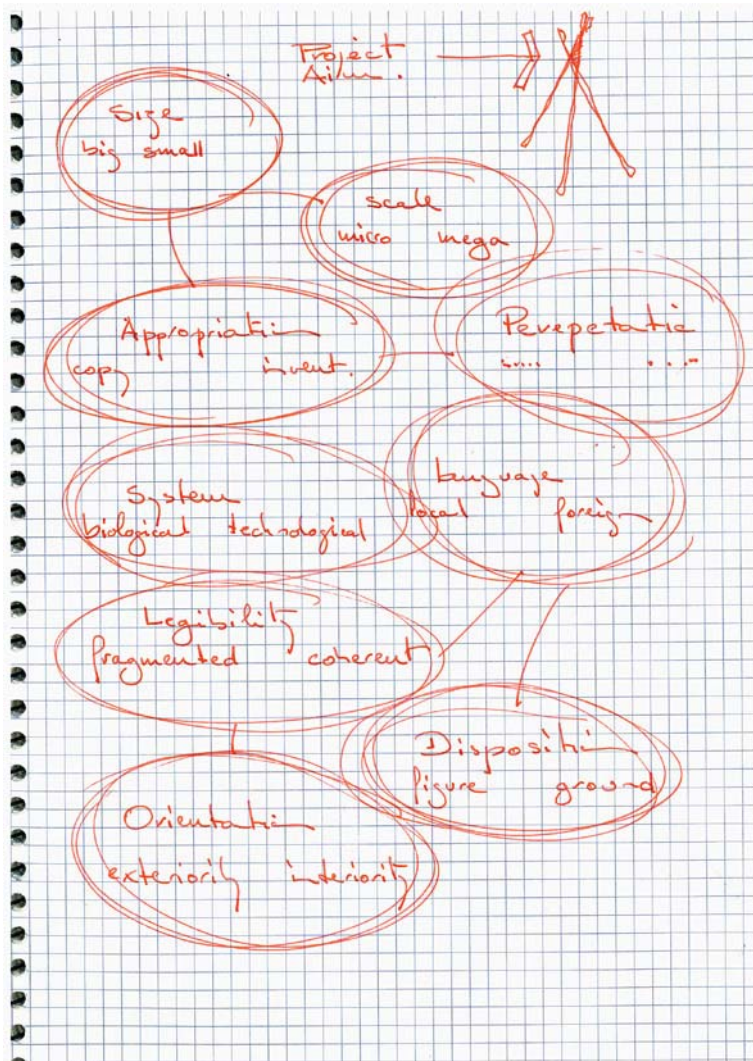 Project
Aim.
Size
big small
scale
micro mega
Appropriation
copy invent.
Perepetatic
System
biological technological
Language
local foreign
Legibility
fragmented coherent
Disposition
figure ground
Orientation
exteriority interiority